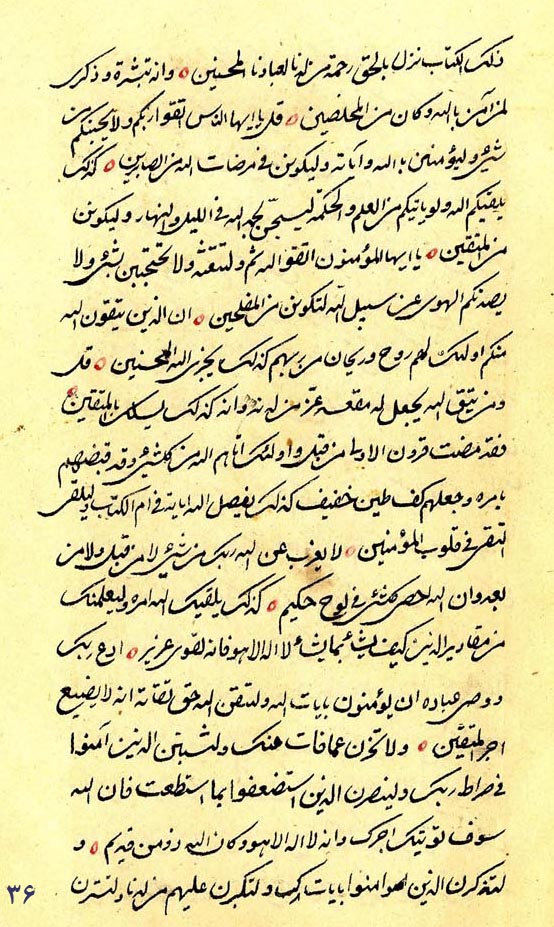 ذلك الكتاب نزل بالحق رحمة من لدنا لعبادنا المحسنين ه وانه تبشرة وذكرى
لمن آمن بالله وكان من المخلصين ه قل يا ايها الناس اتقوا ربكم ولا يحجبنكم من
شيء وليؤمنين بالله وآياته وليكونن في مرضات الله من الصابرين ه كذلك
يلقيكم الله ولوياتيكم من العلم والحكمة ليسبحن بحمد الله في الليل والنهار وليكونن
من المتقين ه يا ايها المؤمنون اتقوا الله ثم ولا تحتجبن بشيء ولا
يصدنكم الهوى عن سبيل الله لتكونن من المفلحين ه ان الذين يتقون الله
منكم اولئك لهم روح وريحان من ربهم كذلك يجزي الله المحسنين ه قل
ومن يتق الله يجعل له مقعد عز من لدنه وانه كذلك بالمتقين ه
فقد مضت قرون الاولى من قبل واولئك اتاهم الله من كلشيء وقد قبضهم
بامره وجعلهم كف طين خفيف كذلك يفصل الله اياته في ام الكتاب وليلقى
التقى في قلوب المؤمنين ه لا يعزب عن الله ربك من شيء لا من قبل ولا من
بعد وان الله احصى كلشيء في لوح حكيم ه كذلك يلقيك الله امره وليعلمنك
من مقادير الدين كيف يشاء بما يشاء لا اله الا هو فانه لقوي عزيز ه ادع ربك
ووصى عباده ان يؤمنون بايات الله ولتتقن الله حق تقاته انه لا يضيع
اجر المتقين ه ولا تحزن عما فات عنك ولتثبتن الذين آمنوا
في صراط ربك ولينصرن الذين استضعفوا بما استطعت فان الله
سوف يؤتيك اجرك وانه لا اله الا هو وكان الله ذو من قديم ه و
لتذكرن الذين هم امنوا بايات الله ولتكبرن عليهم من لدنا
۳۶